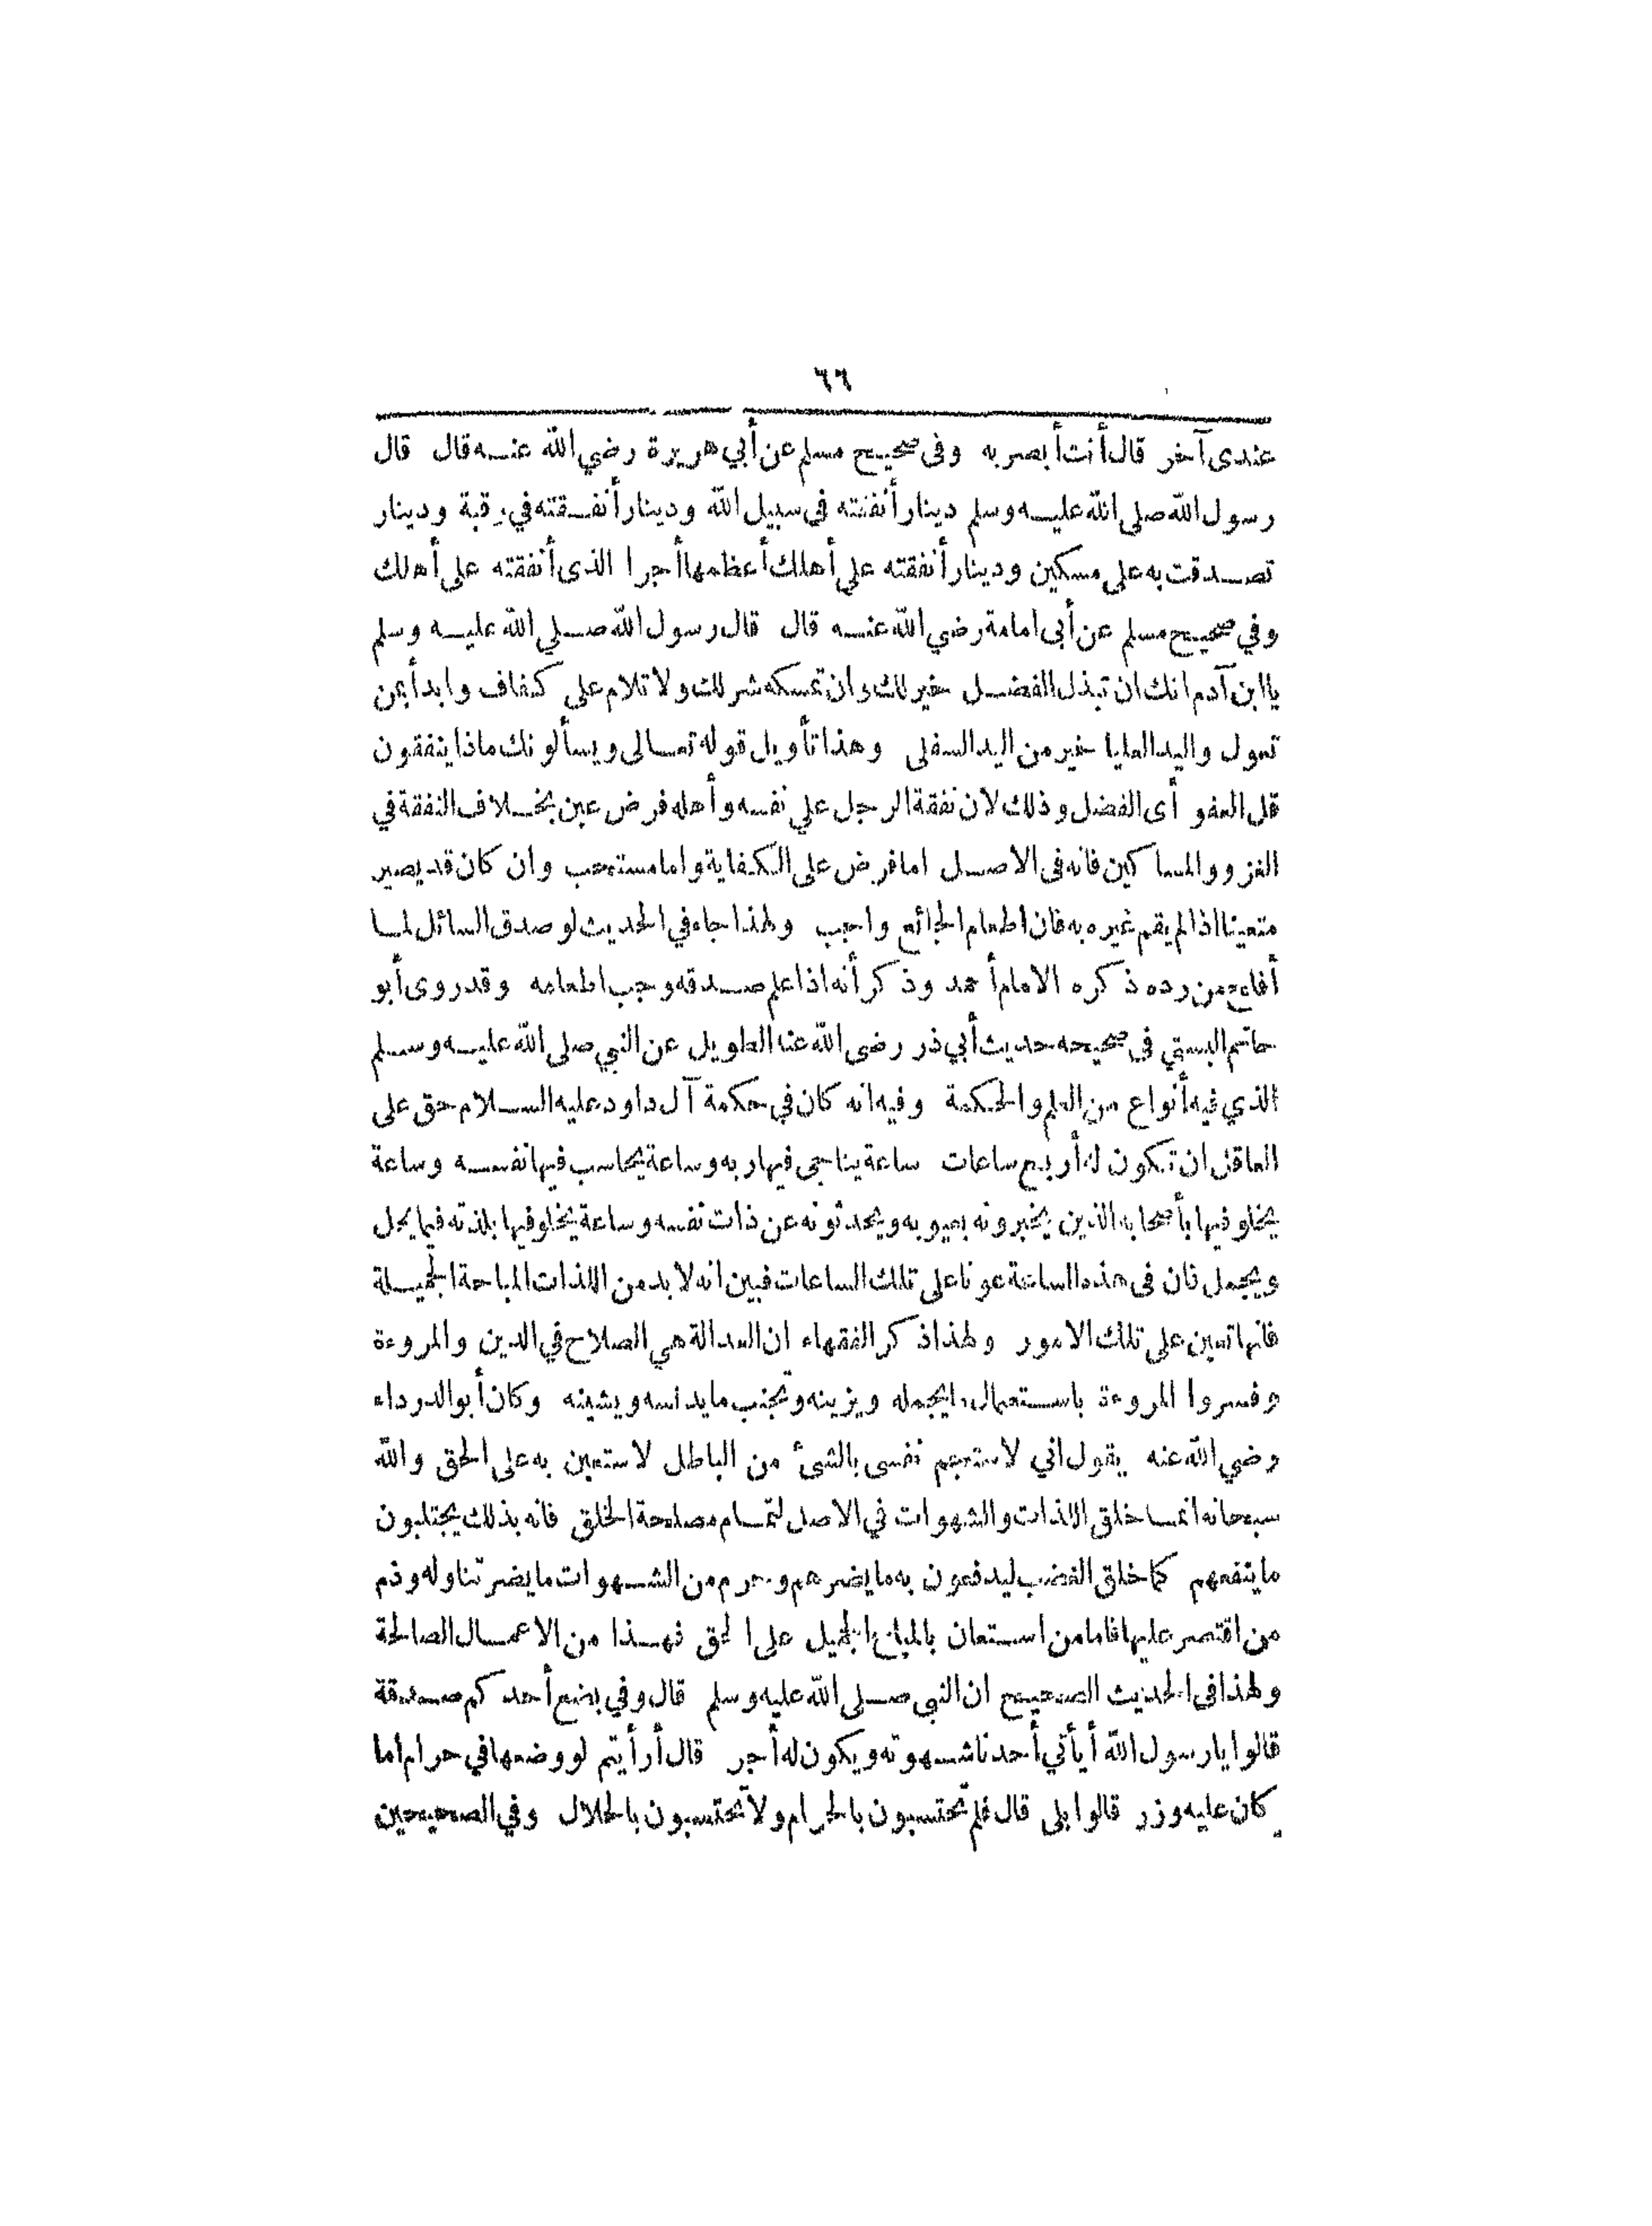 ٦٦
عندى آخر قال أنت أبصر به وفى صحيح مسلم عن أبي هريرة رضي الله عنه قال قال
رسول الله صلى الله عليه وسلم دينار أنفقته فى سبيل الله ودينار أنفقته في رقبة ودينار
تصدقت به على مسكين ودينار أنفقته على أهلك أعظمها أجرا الذى أنفقته على أهلك
وفي صحيح مسلم عن أبى امامة رضي الله عنه قال قال رسول الله صلي الله عليه وسلم
ياابن آدم انك ان تبذل الفضل خير لك وان تمسكه شر لك ولا تلام على كفاف وابدأ بمن
تعول واليد العليا خير من اليد السفلى وهذا تأويل قوله تعالى ويسألونك ماذا ينفقون
قل العفو أى الفضل وذلك لان نفقة الرجل علي نفسه وأهله فرض عين بخلاف النفقة في
الغزو والمساكين فانه فى الاصل اما فرض على الكفاية واما مستحب وان كان قد يصير
متعينا اذا لم يقم غيره به فان اطعام الجائع واجب ولهذا جاء في الحديث لو صدق السائل لما
أفلح من رده ذكره الامام أحمد وذكر أنه اذا علم صدقه وجب اطعامه وقد روى أبو
حاتم البستي في صحيحه حديث أبي ذر رضى الله عنه الطويل عن النبي صلى الله عليه وسلم
الذي فيه أنواع من العلم والحكمة وفيه انه كان في حكمة آل داود عليه السلام حق على
العاقل ان تكون له أربع ساعات ساعة يناجى فيها ربه وساعة يحاسب فيها نفسه وساعة
يخلو فيها بأصحابه الذين يخبرونه بعيوبه ويحدثونه عن ذات نفسه وساعة يخلو فيها بلذته فيما يحل
ويجمل فان فى هذه الساعة عونا على تلك الساعات فبين انه لا بد من اللذات المباحة الجميلة
فانها تعين على تلك الامور ولهذا ذكر الفقهاء ان العدالة هي الصلاح في الدين والمروءة
وفسروا المروءة باستعمال ما يجمله ويزينه وتجنب ما يدنسه ويشينه وكان أبو الدرداء
رضي الله عنه يقول اني لاستجم نفسى بالشئ من الباطل لاستعين به على الحق والله
سبحانه انما خلق اللذات والشهوات في الاصل لتمام مصلحة الخلق فانه بذلك يجتلبون
ما ينفعهم كما خلق الغضب ليدفعون به ما يضرهم وحرم من الشهوات ما يضر تناوله وذم
من اقتصر عليها فاما من استعان بالمباح الجميل على الحق فهذا من الاعمال الصالحة
ولهذا فى الحديث الصحيح ان النبي صلى الله عليه وسلم قال وفي بضع أحدكم صدقة
قالوا يارسول الله أيأتي أحدنا شهوته ويكون له أجر قال أرأيتم لو وضعها في حرام اما
كان عليه وزر قالوا بلى قال فلم تحتسبون بالحرام ولا تحتسبون بالحلال وفي الصحيحين